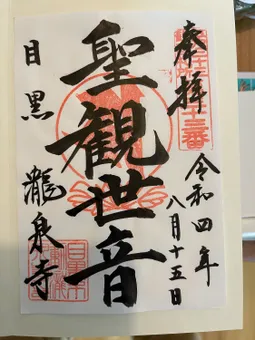 奉拝
令和四年
八月十五日
聖観世音
目黒 瀧泉寺